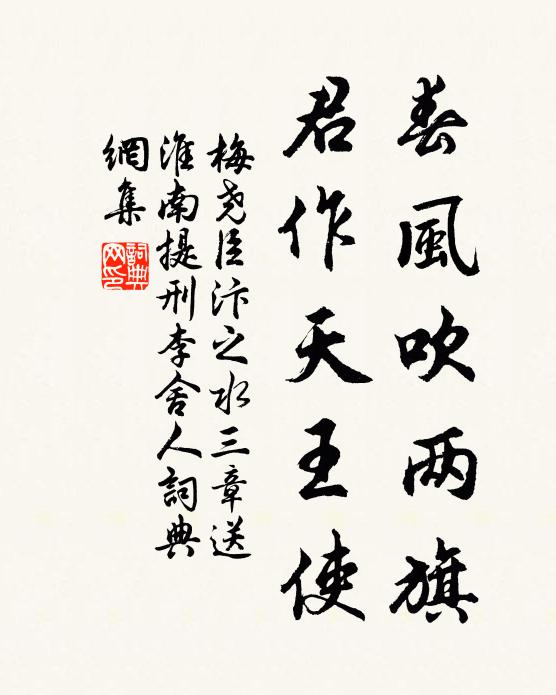 春風吹两旗
君作天王使
梅尧臣汴之水三章送
淮南提刑李舍人詞典
網集
詞典网印